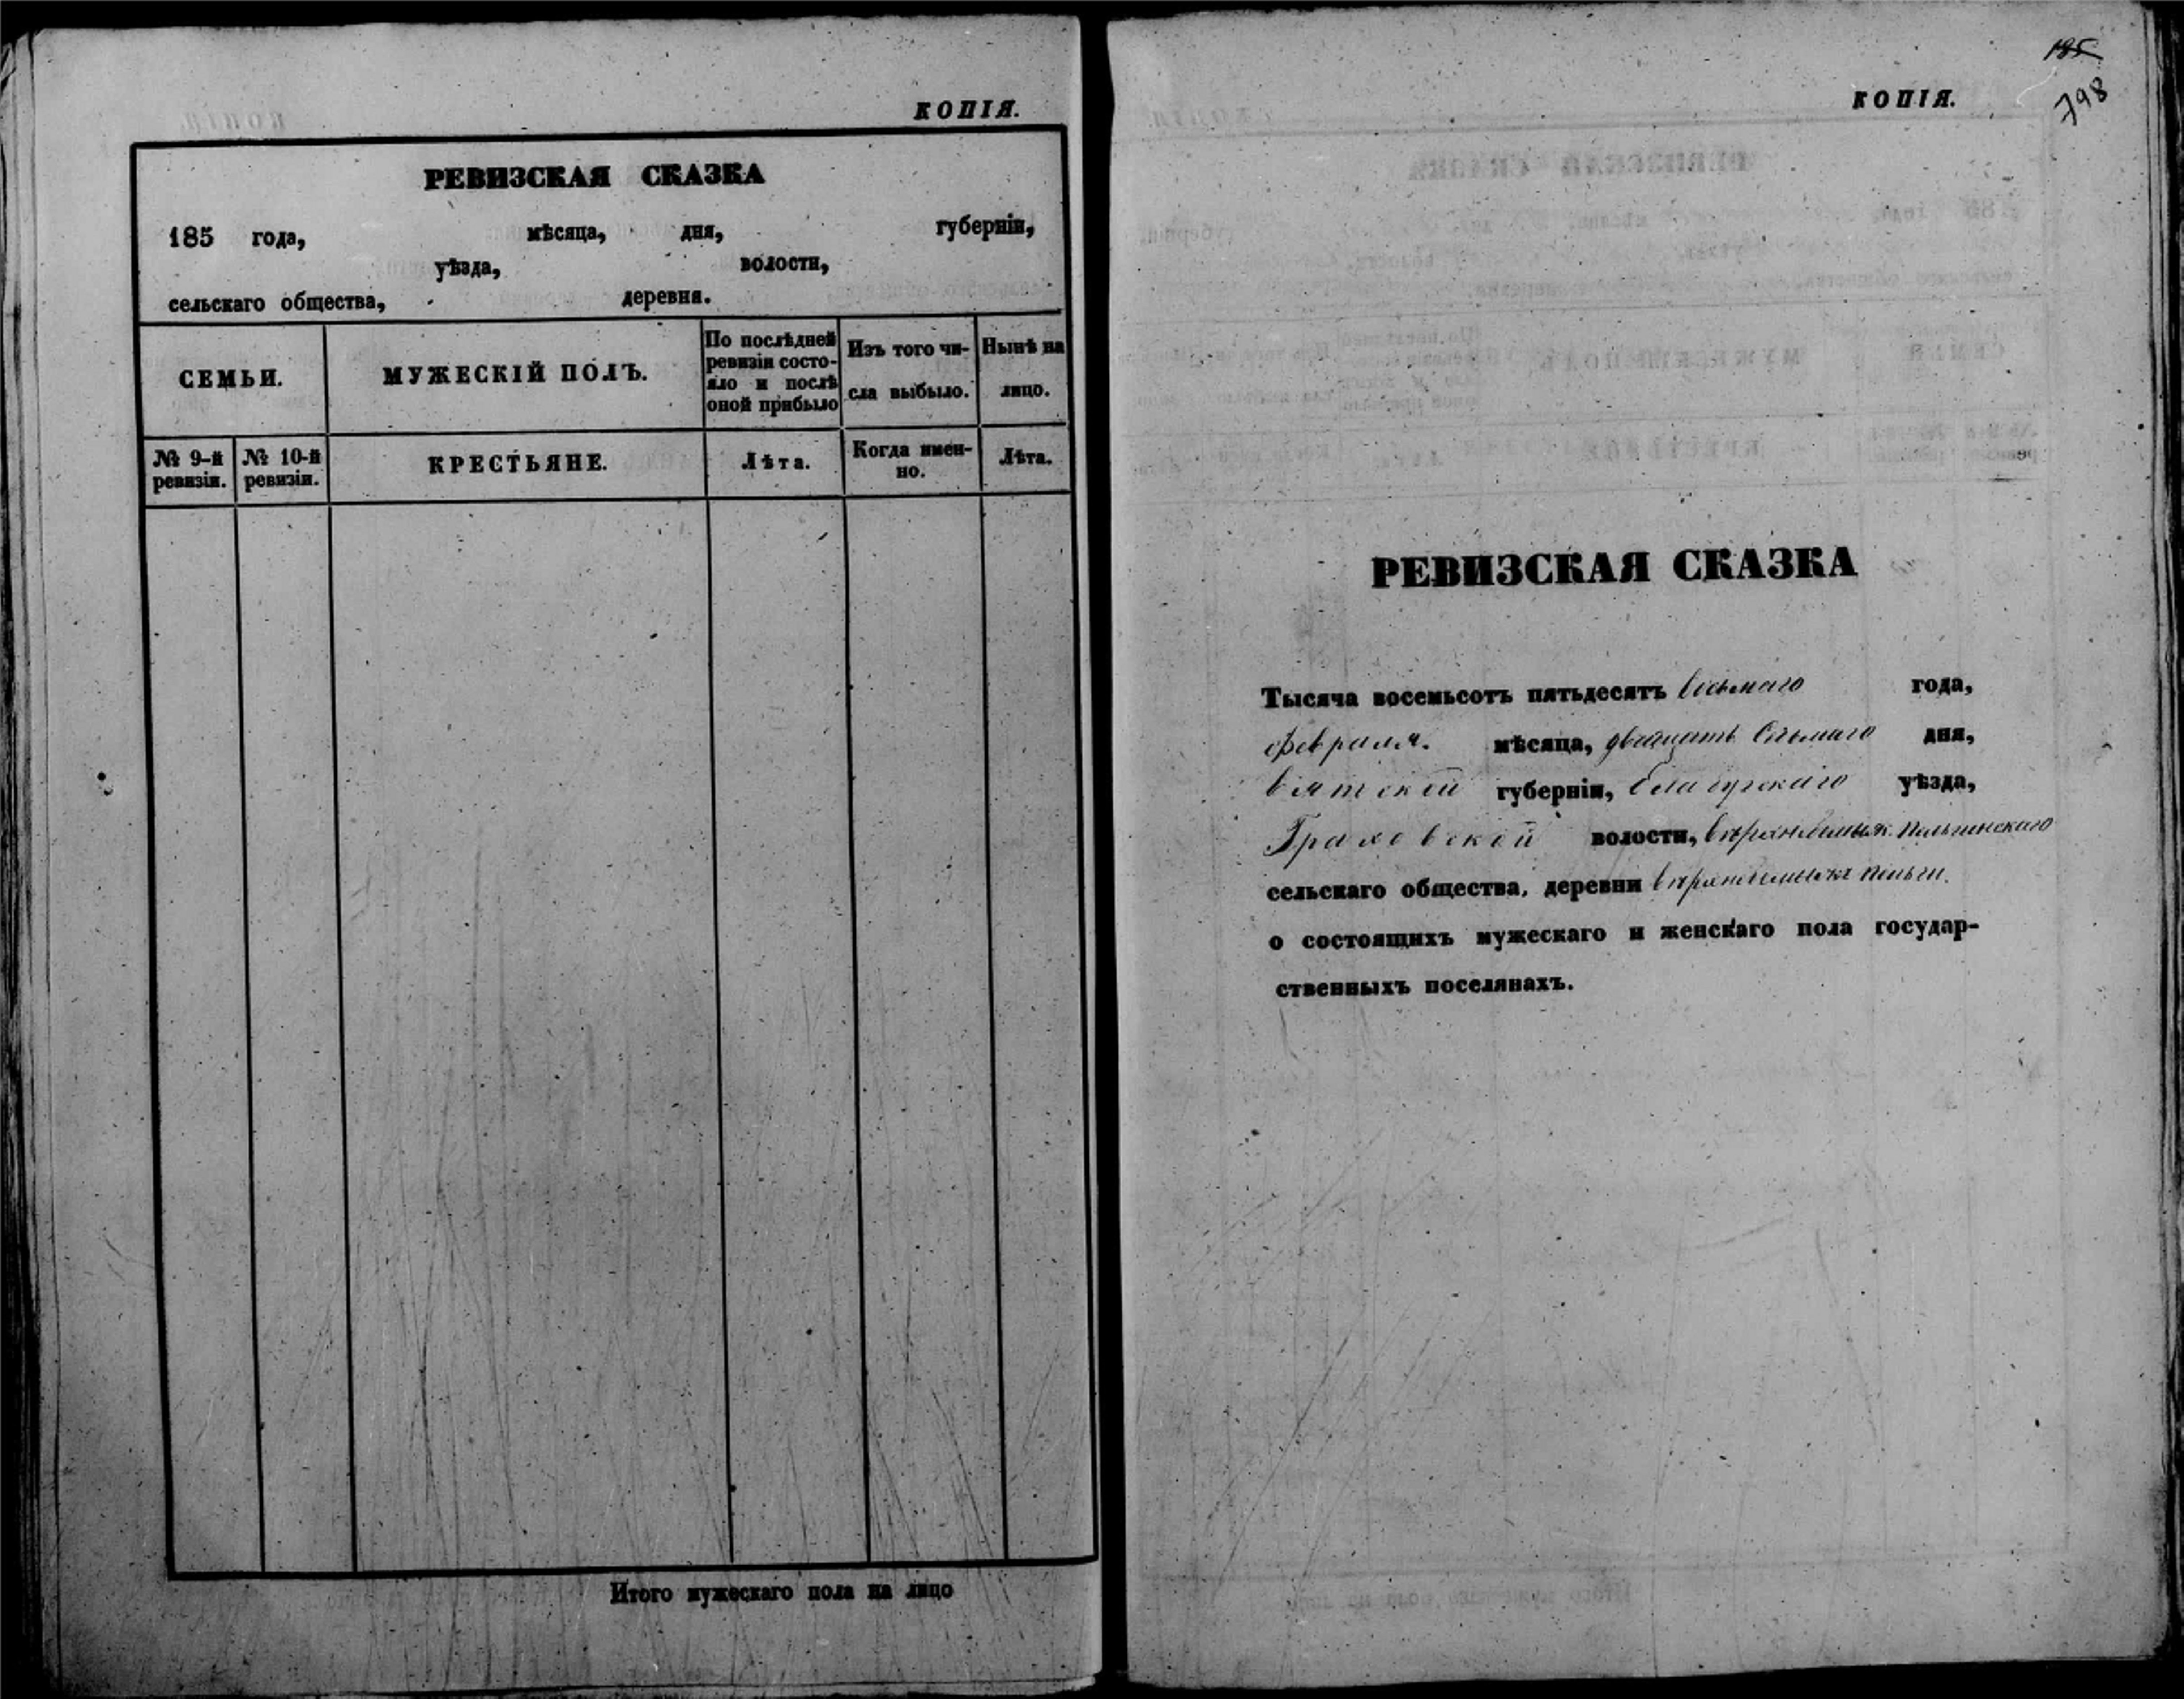 КОПІЯ.
РЕВИЗСКАЯ СКАЗКА
185 года, мѣсяца, дня, губерніи,
уѣзда, волости,
сельскаго общества, деревня.
СЕМЬИ.
МУЖЕСКІЙ ПОЛЪ.
По послѣдней
ревизіи состо-
яло и послѣ
оной прибыло
Изъ того чи-
сла выбыло.
Нынѣ на
лицо.
№ 9-й
ревизіи.
№ 10-й
ревизіи.
КРЕСТЬЯНЕ.
Лѣта.
Когда имен-
но.
Лѣта.
Итого мужескаго пола на лицо
185
798
КОПІЯ.
РЕВИЗСКАЯ СКАЗКА
Тысяча восемьсотъ пятьдесятъ восьмаго года,
февраля. мѣсяца, двадцать дня,
Вятской губерніи, Елабугскаго уѣзда,
Граховской волости,
сельскаго общества, деревни
о состоящихъ мужескаго и женскаго пола государ-
ственныхъ поселянахъ.